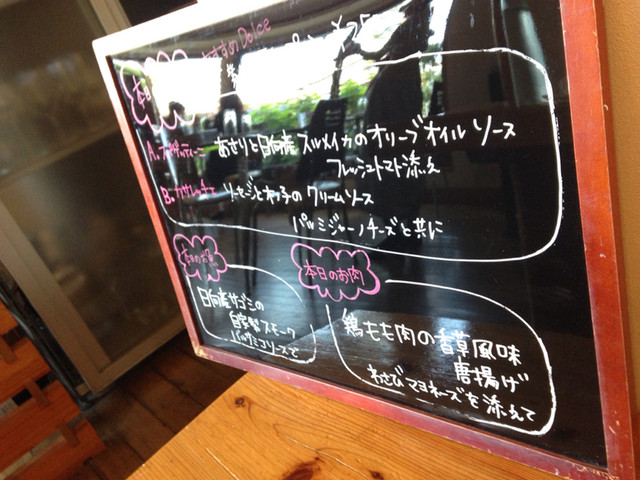 おすすめDolce
本日
A. フェデリーニ あさりと日向産スルメイカのオリーブオイルソース
フレッシュトマト添え
B. カサレッチェ ソーセージときの子のクリームソース
パルミジャーノチーズと共に
本日のお魚
日向産サゴシの
自家製スモーク
バルサミコソースで
本日のお肉
鶏もも肉の香草風味
唐揚げ
わさびマヨネーズを添えて